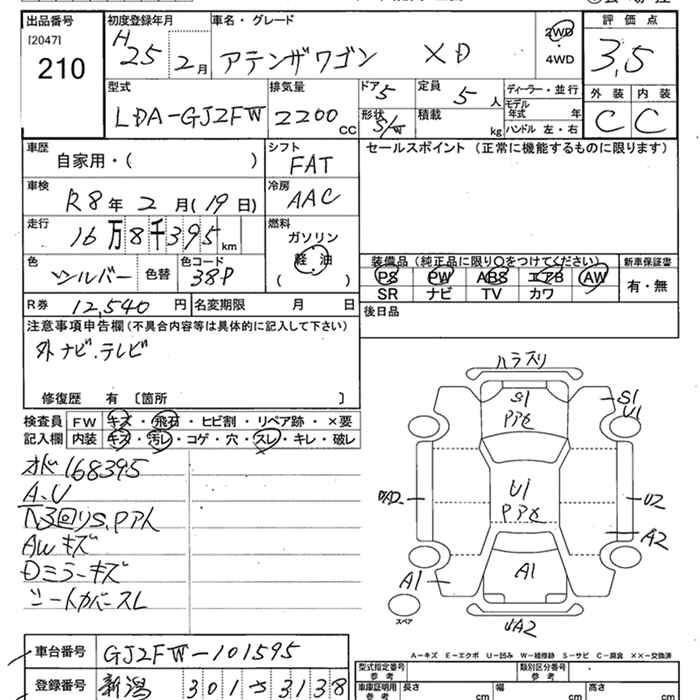 出品番号 初度登録年月 車名・グレード 評価点
[2047]
210
H 25 2月 アテンザワゴン XD 2WD・4WD 3.5
型式 排気量 ドア 5 定員 5人 ディーラー・並行 外装 内装
LDA-GJ2FW 2200 CC 形状 S/W 積載 kg モデル年式 年 ハンドル 左・右 C C
車歴 シフト セールスポイント (正常に機能するものに限ります)
自家用・( ) FAT
車検 冷房
R8年 2月(19日) AAC
走行 燃料
16万8千395km ガソリン
軽油
( )
色 色替 色コード
シルバー 38P
装備品 (純正品に限り○をつけてください) 新車保証書
PS PW ABS エアB AW 有・無
SR ナビ TV カワ
R券 12,540円 名変期限 月 日 後日品
注意事項申告欄(不具合内容等は具体的に記入して下さい)
外ナビ.テレビ
修復歴 有 〔箇所 〕
検査員 FW キズ・飛石・ヒビ割・リペア跡・×要
記入欄 内装 キズ・汚レ・コゲ・穴・スレ・キレ・破レ
オド168395
A、U
AWキズ
Dミラーキズ
シートカバースレ
ハラスリ
S1
PアセS1
U1
U1
Pアセ
U2
A2
A1
A1
UA2
スペア
A-キズ E-エクボ U-凹み W-補修跡 S-サビ C-腐食 ××-交換済
車台番号 GJ2FW-101595
登録番号 新潟 301 さ 3138
型式指定番号 参考 類別区分番号 参考
車庫証明用 参考 長さ cm 幅 cm 高さ cm